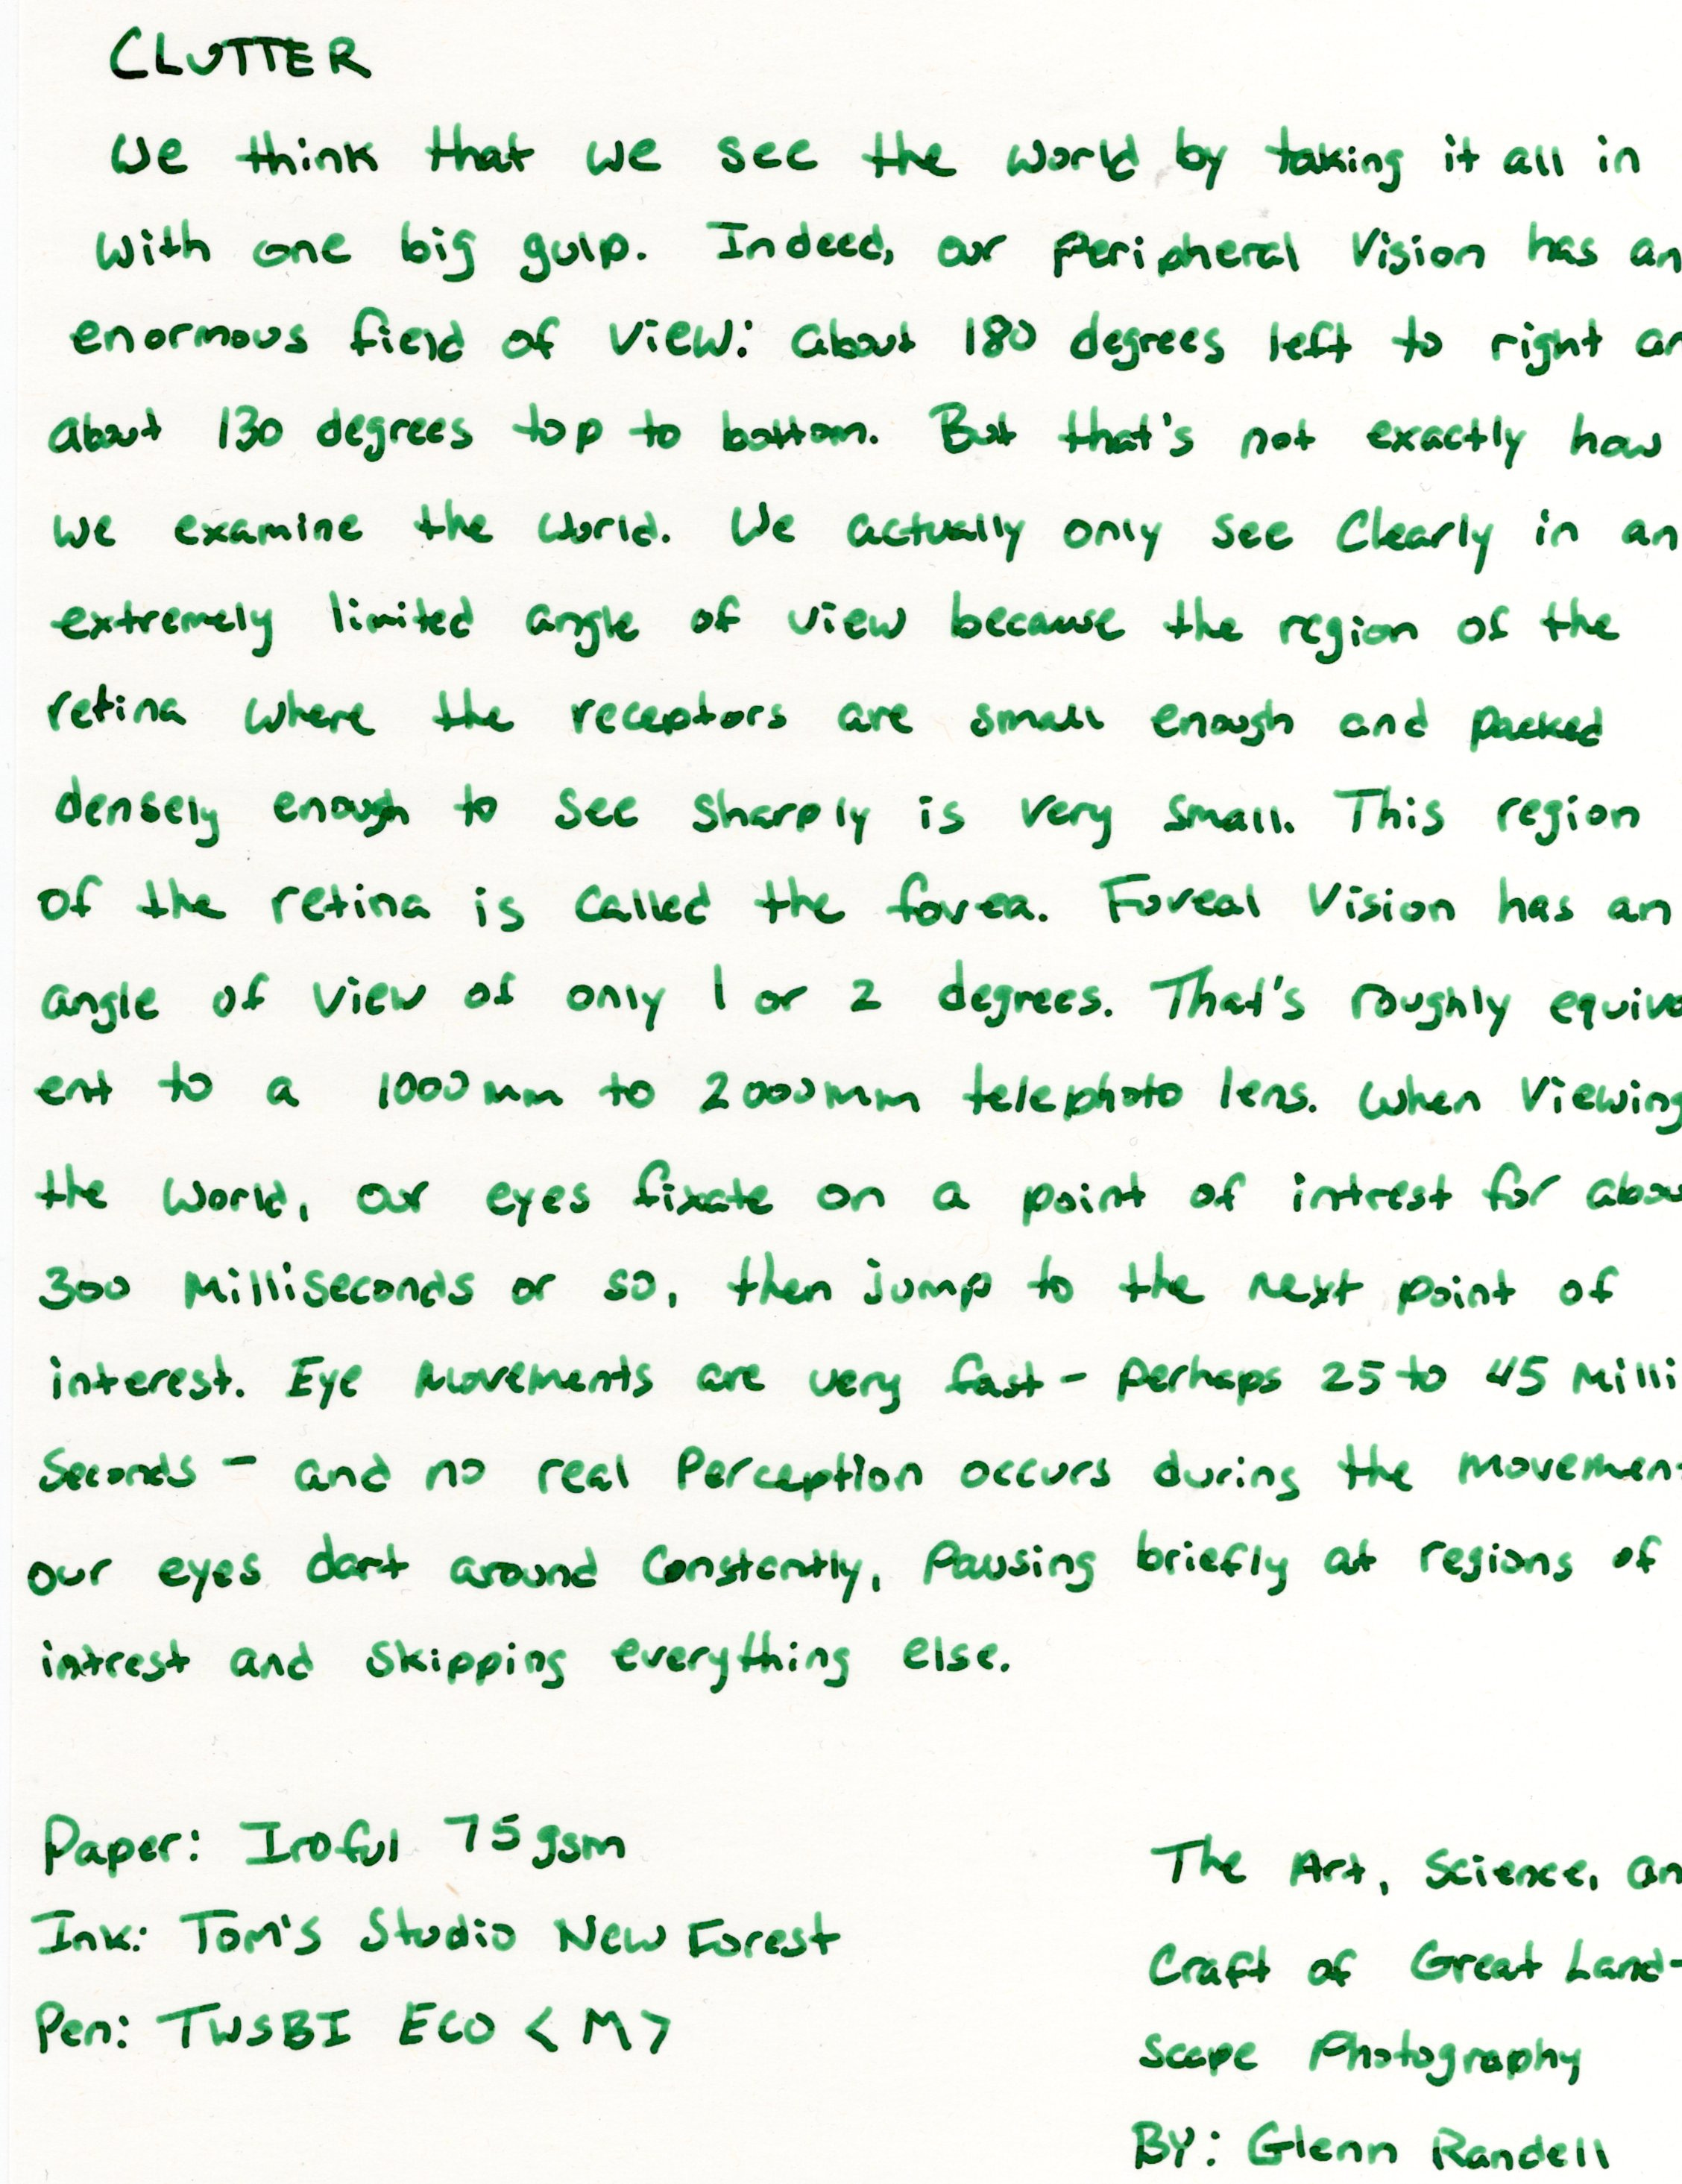 CLUTTER
We think that we see the world by taking it all in
with one big gulp. Indeed, our peripheral vision has an
enormous field of view: about 180 degrees left to right an
about 130 degrees top to bottom. But that's not exactly how
we examine the world. We actually only see clearly in an
extremely limited angle of view because the region of the
retina where the receptors are small enough and packed
densely enough to see sharply is very small. This region
of the retina is called the fovea. Foveal vision has an
angle of view of only 1 or 2 degrees. That's roughly equiva
ent to a 1000mm to 2000mm telephoto lens. When viewing
the world, our eyes fixate on a point of intrest for abou
300 milliseconds or so, then jump to the next point of
interest. Eye movements are very fast - perhaps 25 to 45 milli
seconds - and no real perception occurs during the movement
our eyes dart around constantly, pausing briefly at regions of
intrest and skipping everything else.
Paper: Iroful 75gsm
Ink: Tom's Studio New Forest
Pen: TWSBI ECO <M>
The Art, Science, an
Craft of Great Land-
scape Photography
BY: Glenn Randell